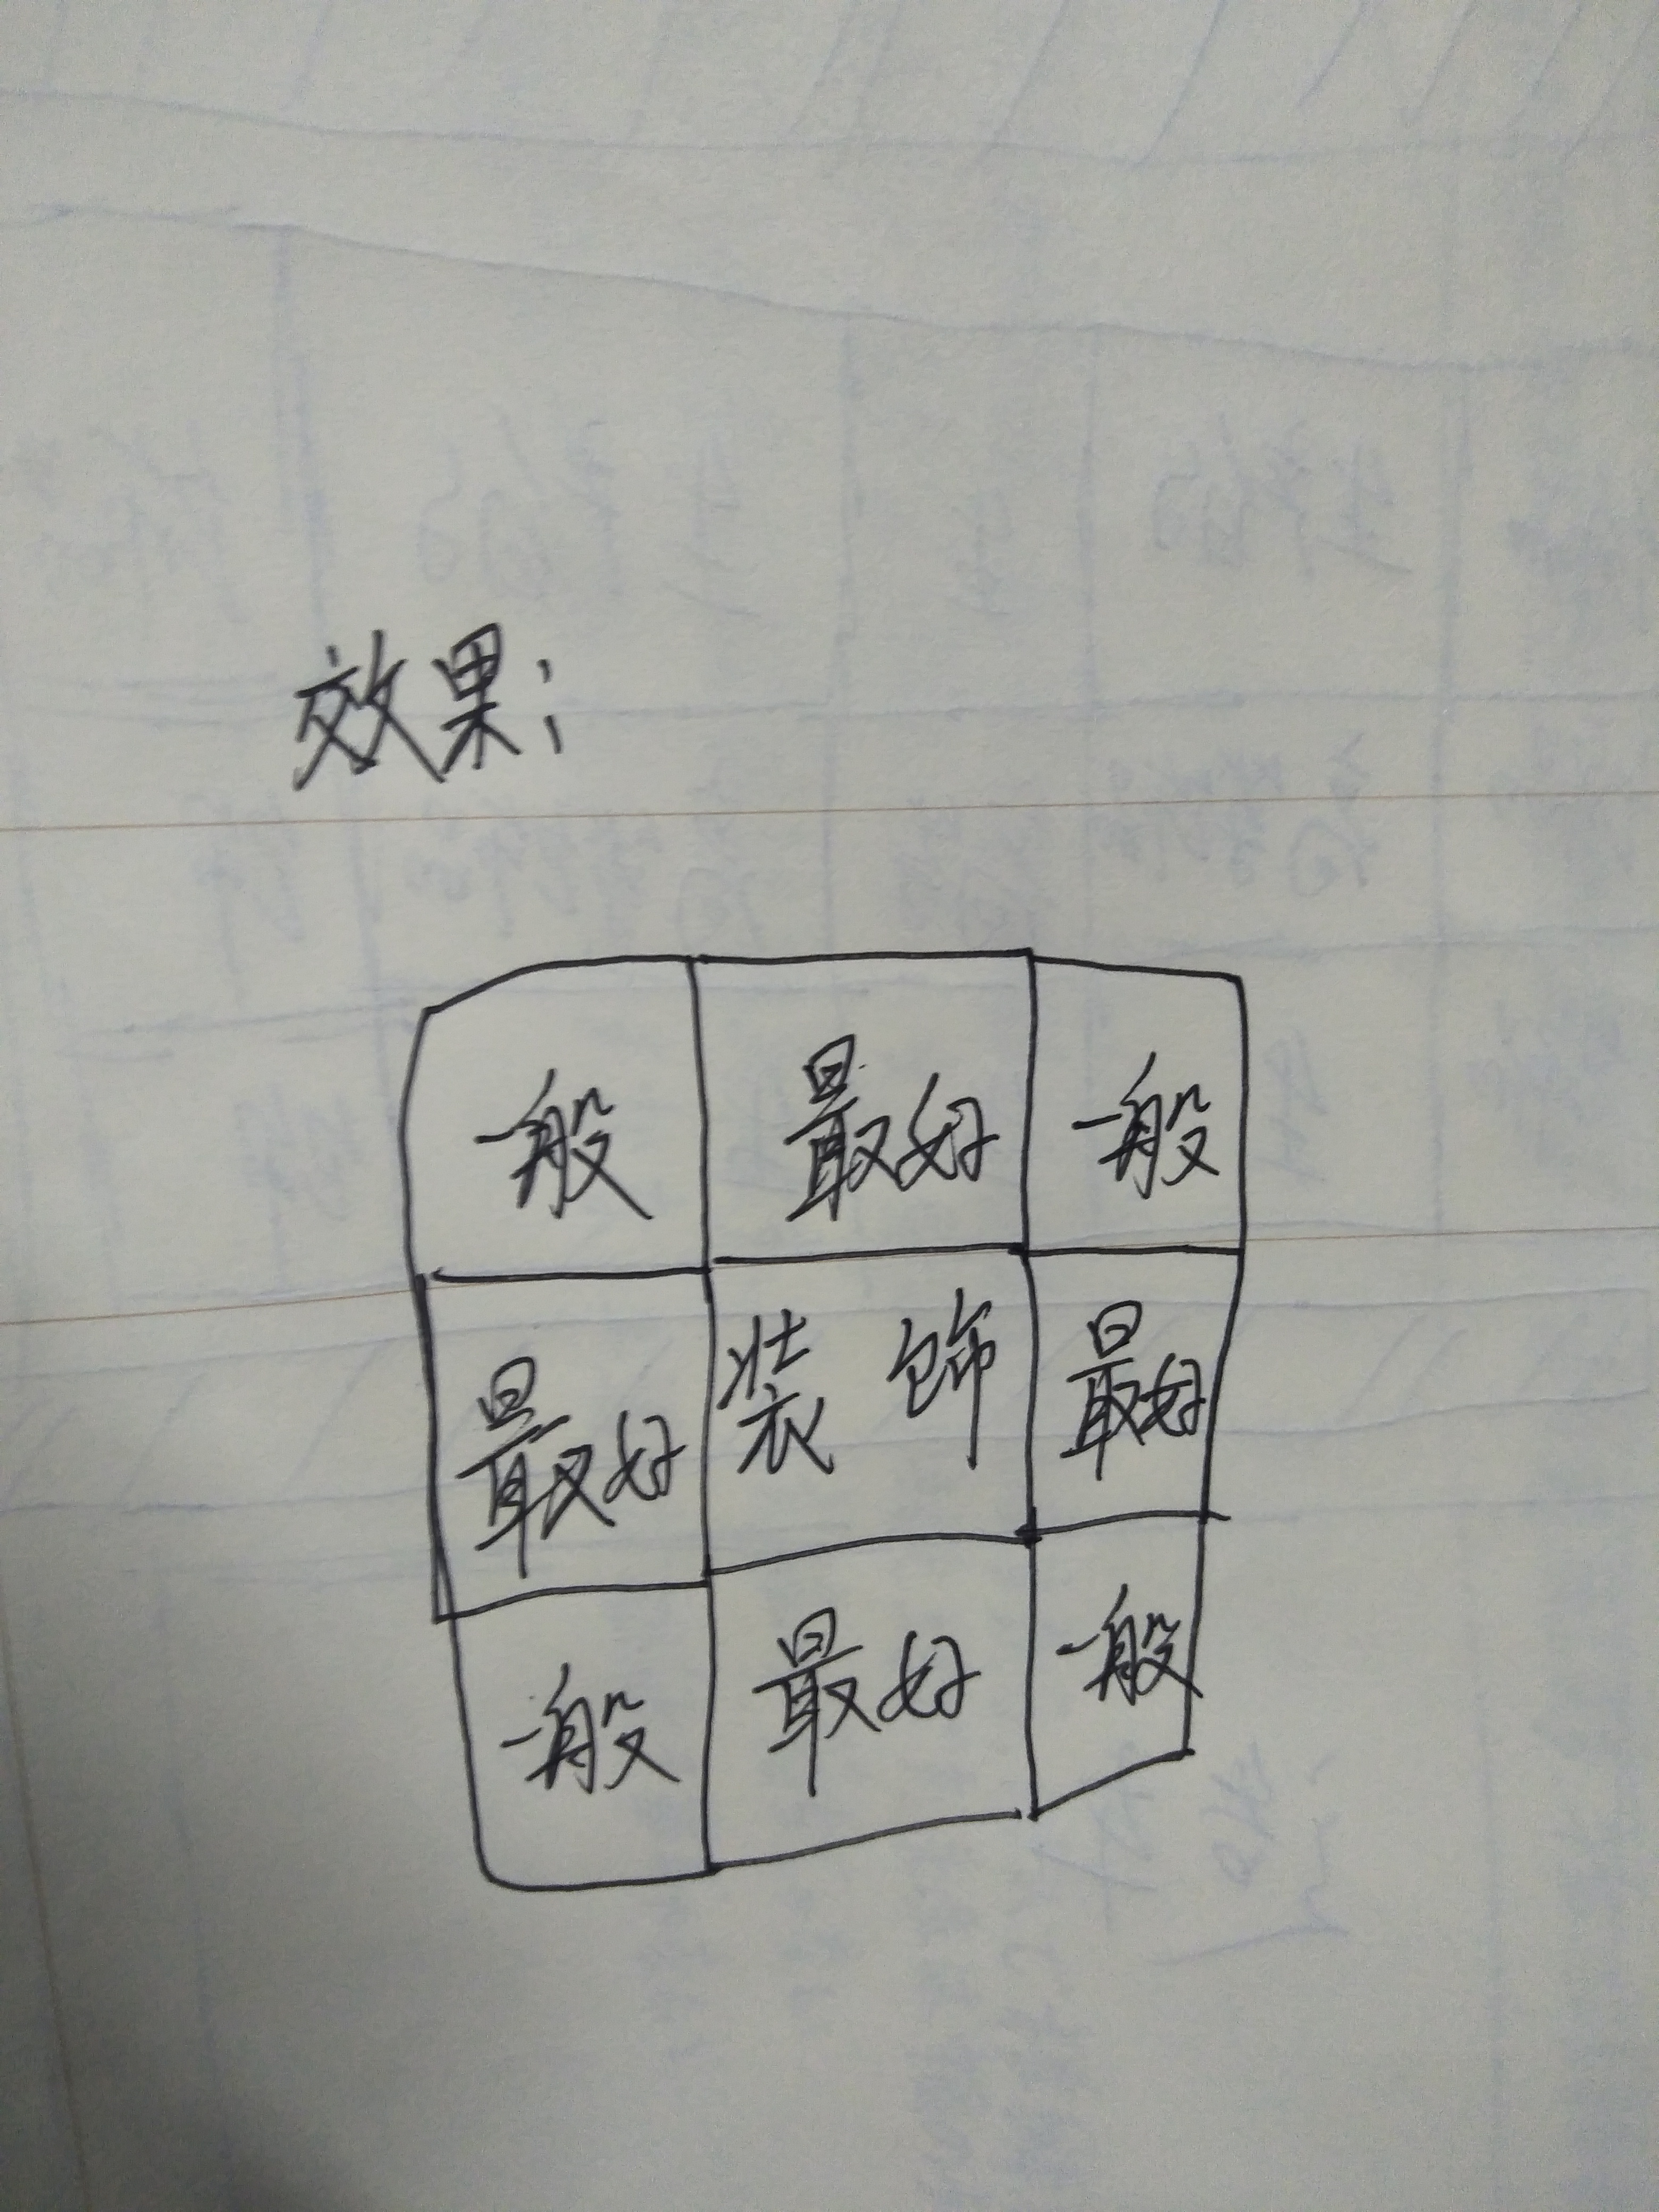 效果：
一般 最好 一般
最好 装饰 最好
一般 最好 一般